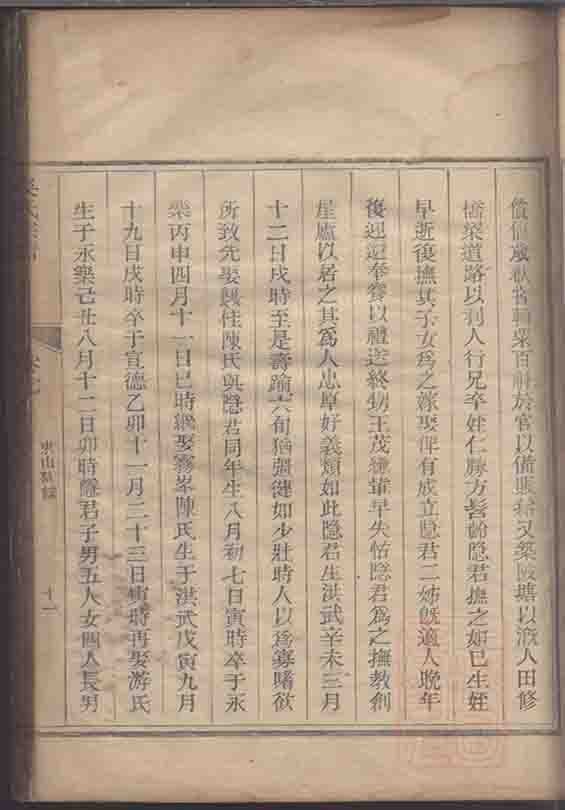 償值歲歉嘗輸粟百斛於官以備賑給又築陂塘以溉人田修
橋梁道路以利人行兄卒姪仁勝方髫齡隱君撫之如己生姪
早逝復撫其子女為之嫁娶俾有成立隱君二姊旣適人晚年
復迎迴奉養以禮送終甥王茂 輩早失怙隱君為之撫教創
屋廬以居之其為人忠厚好義類如此隱君生洪武辛未三月
十二日戌時至是壽踰六旬猶彊健如少壯時人以為寡嗜欲
所致先娶 陳氏與隱君同年生八月初七日寅時卒于永
樂丙申四月十一日巳時繼娶霧峯陳氏生于洪武戊寅九月
十九日戌時卒于宣德乙卯十一月二十三日寅時再娶游氏
生子永樂己丑八月十二日卯時隱君子男五人女四人長男
吳氏宗
卷七
十一